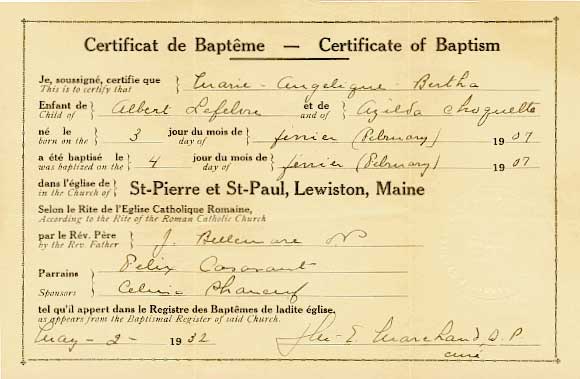 Certificat de Baptême — Certificate of Baptism
Je, soussigné, certifie que } Marie - Angelique - Bertha
This is to certify that
Enfant de } Albert Lefebvre et de } Azilda Choquette
Child of and of
né le } 3 jour du mois de } février (February) 1907
born on the day of
a été baptisé le } 4 jour du mois de } février (February) 1907
was baptized on the day of
dans l'église de } St-Pierre et St-Paul, Lewiston, Maine
in the Church of
Selon le Rite de l'Eglise Catholique Romaine,
According to the Rite of the Roman Catholic Church
par le Rév. Père } J. Bellemare
by the Rev. Father
Parrains } Felix Casavant
Sponsors Phaneuf
tel qu'il appert dans le Registre des Baptêmes de ladite église.
as appears from the Baptismal Register of said Church.
May - 2 - 1932 E. Marchand, O.P.
curé